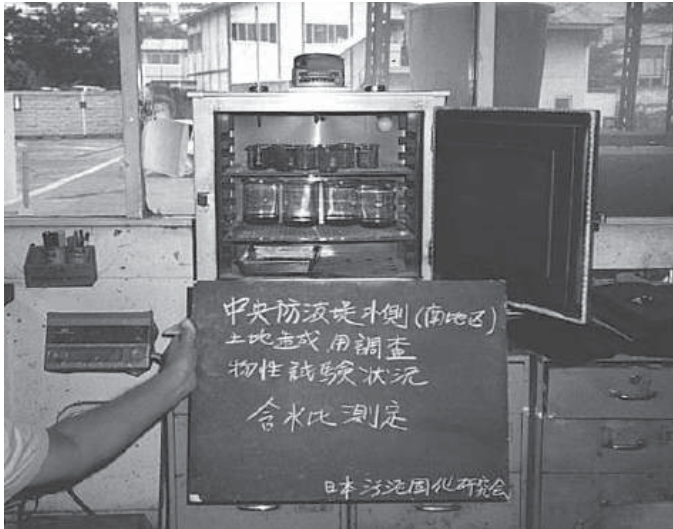 中央防波堤外側(南地区)
土地造成用調査
物性試験状況
含水比測定
日本汚泥固化研究会